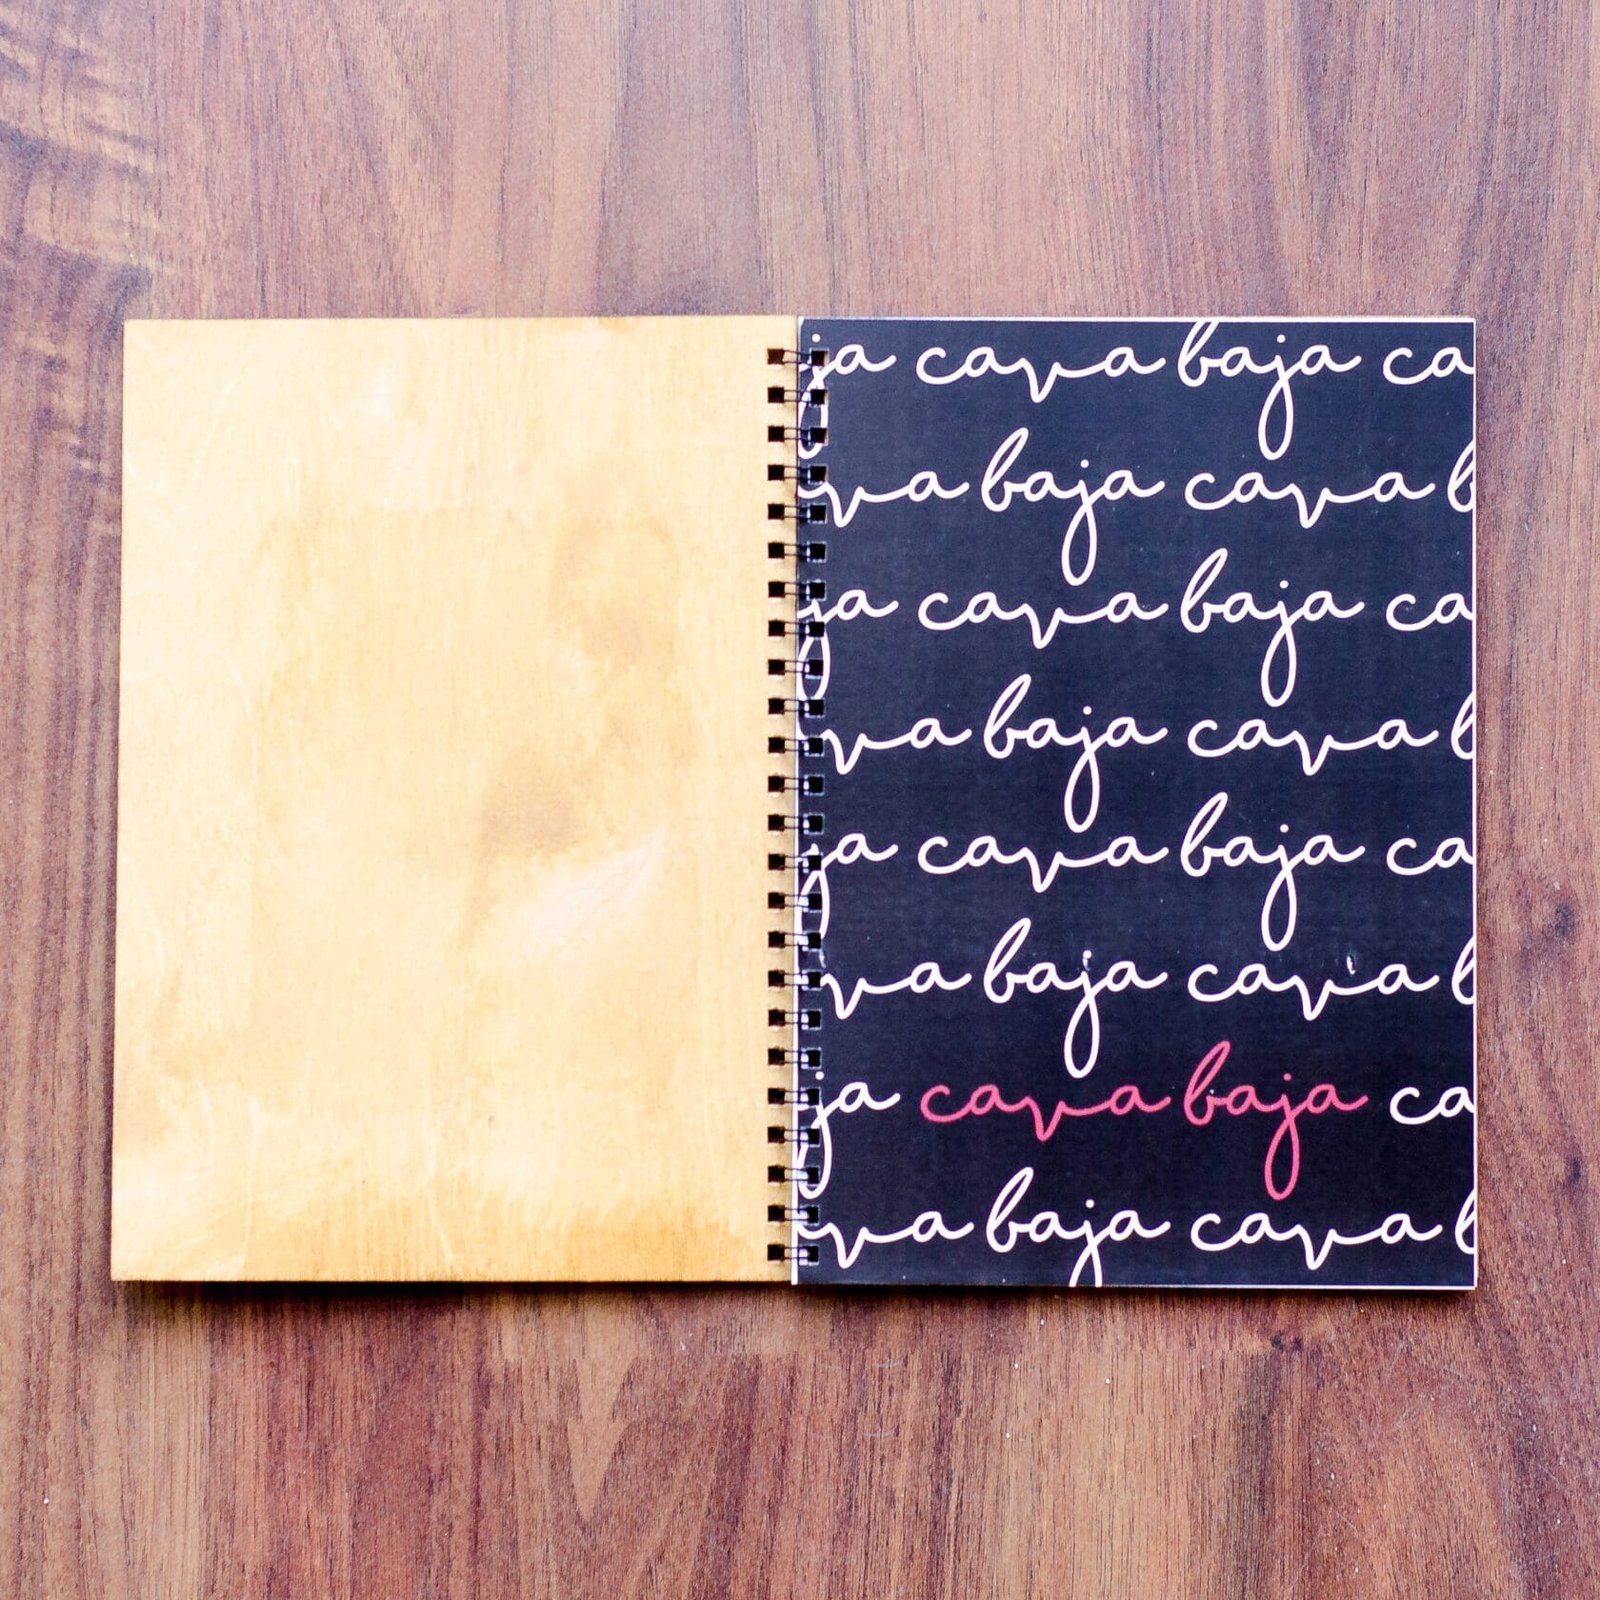 ja cava baja ca
va baja cava b
ja cava baja ca
va baja cava b
ja cava baja ca
va baja cava b
ja cava baja ca
va baja cava b